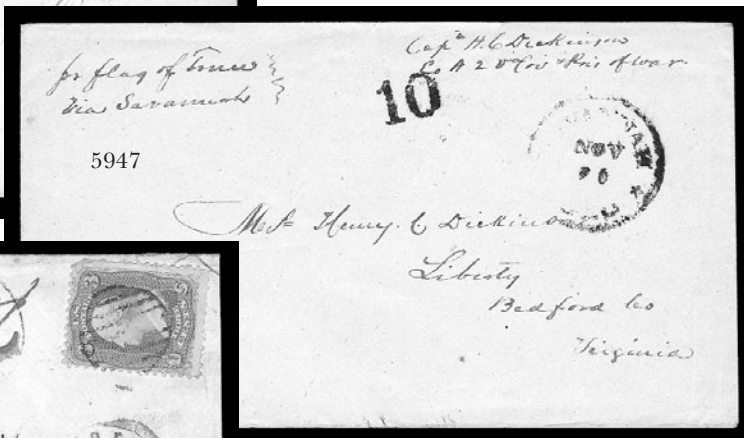 pr flag of Truce
Via Savannah
Capt H. C. Dickinson
Co A 2d Va Cav Pris of war.
10
NOV
5947
Mrs Henry. C Dickinson
Liberty
Bedford Co
Virginia